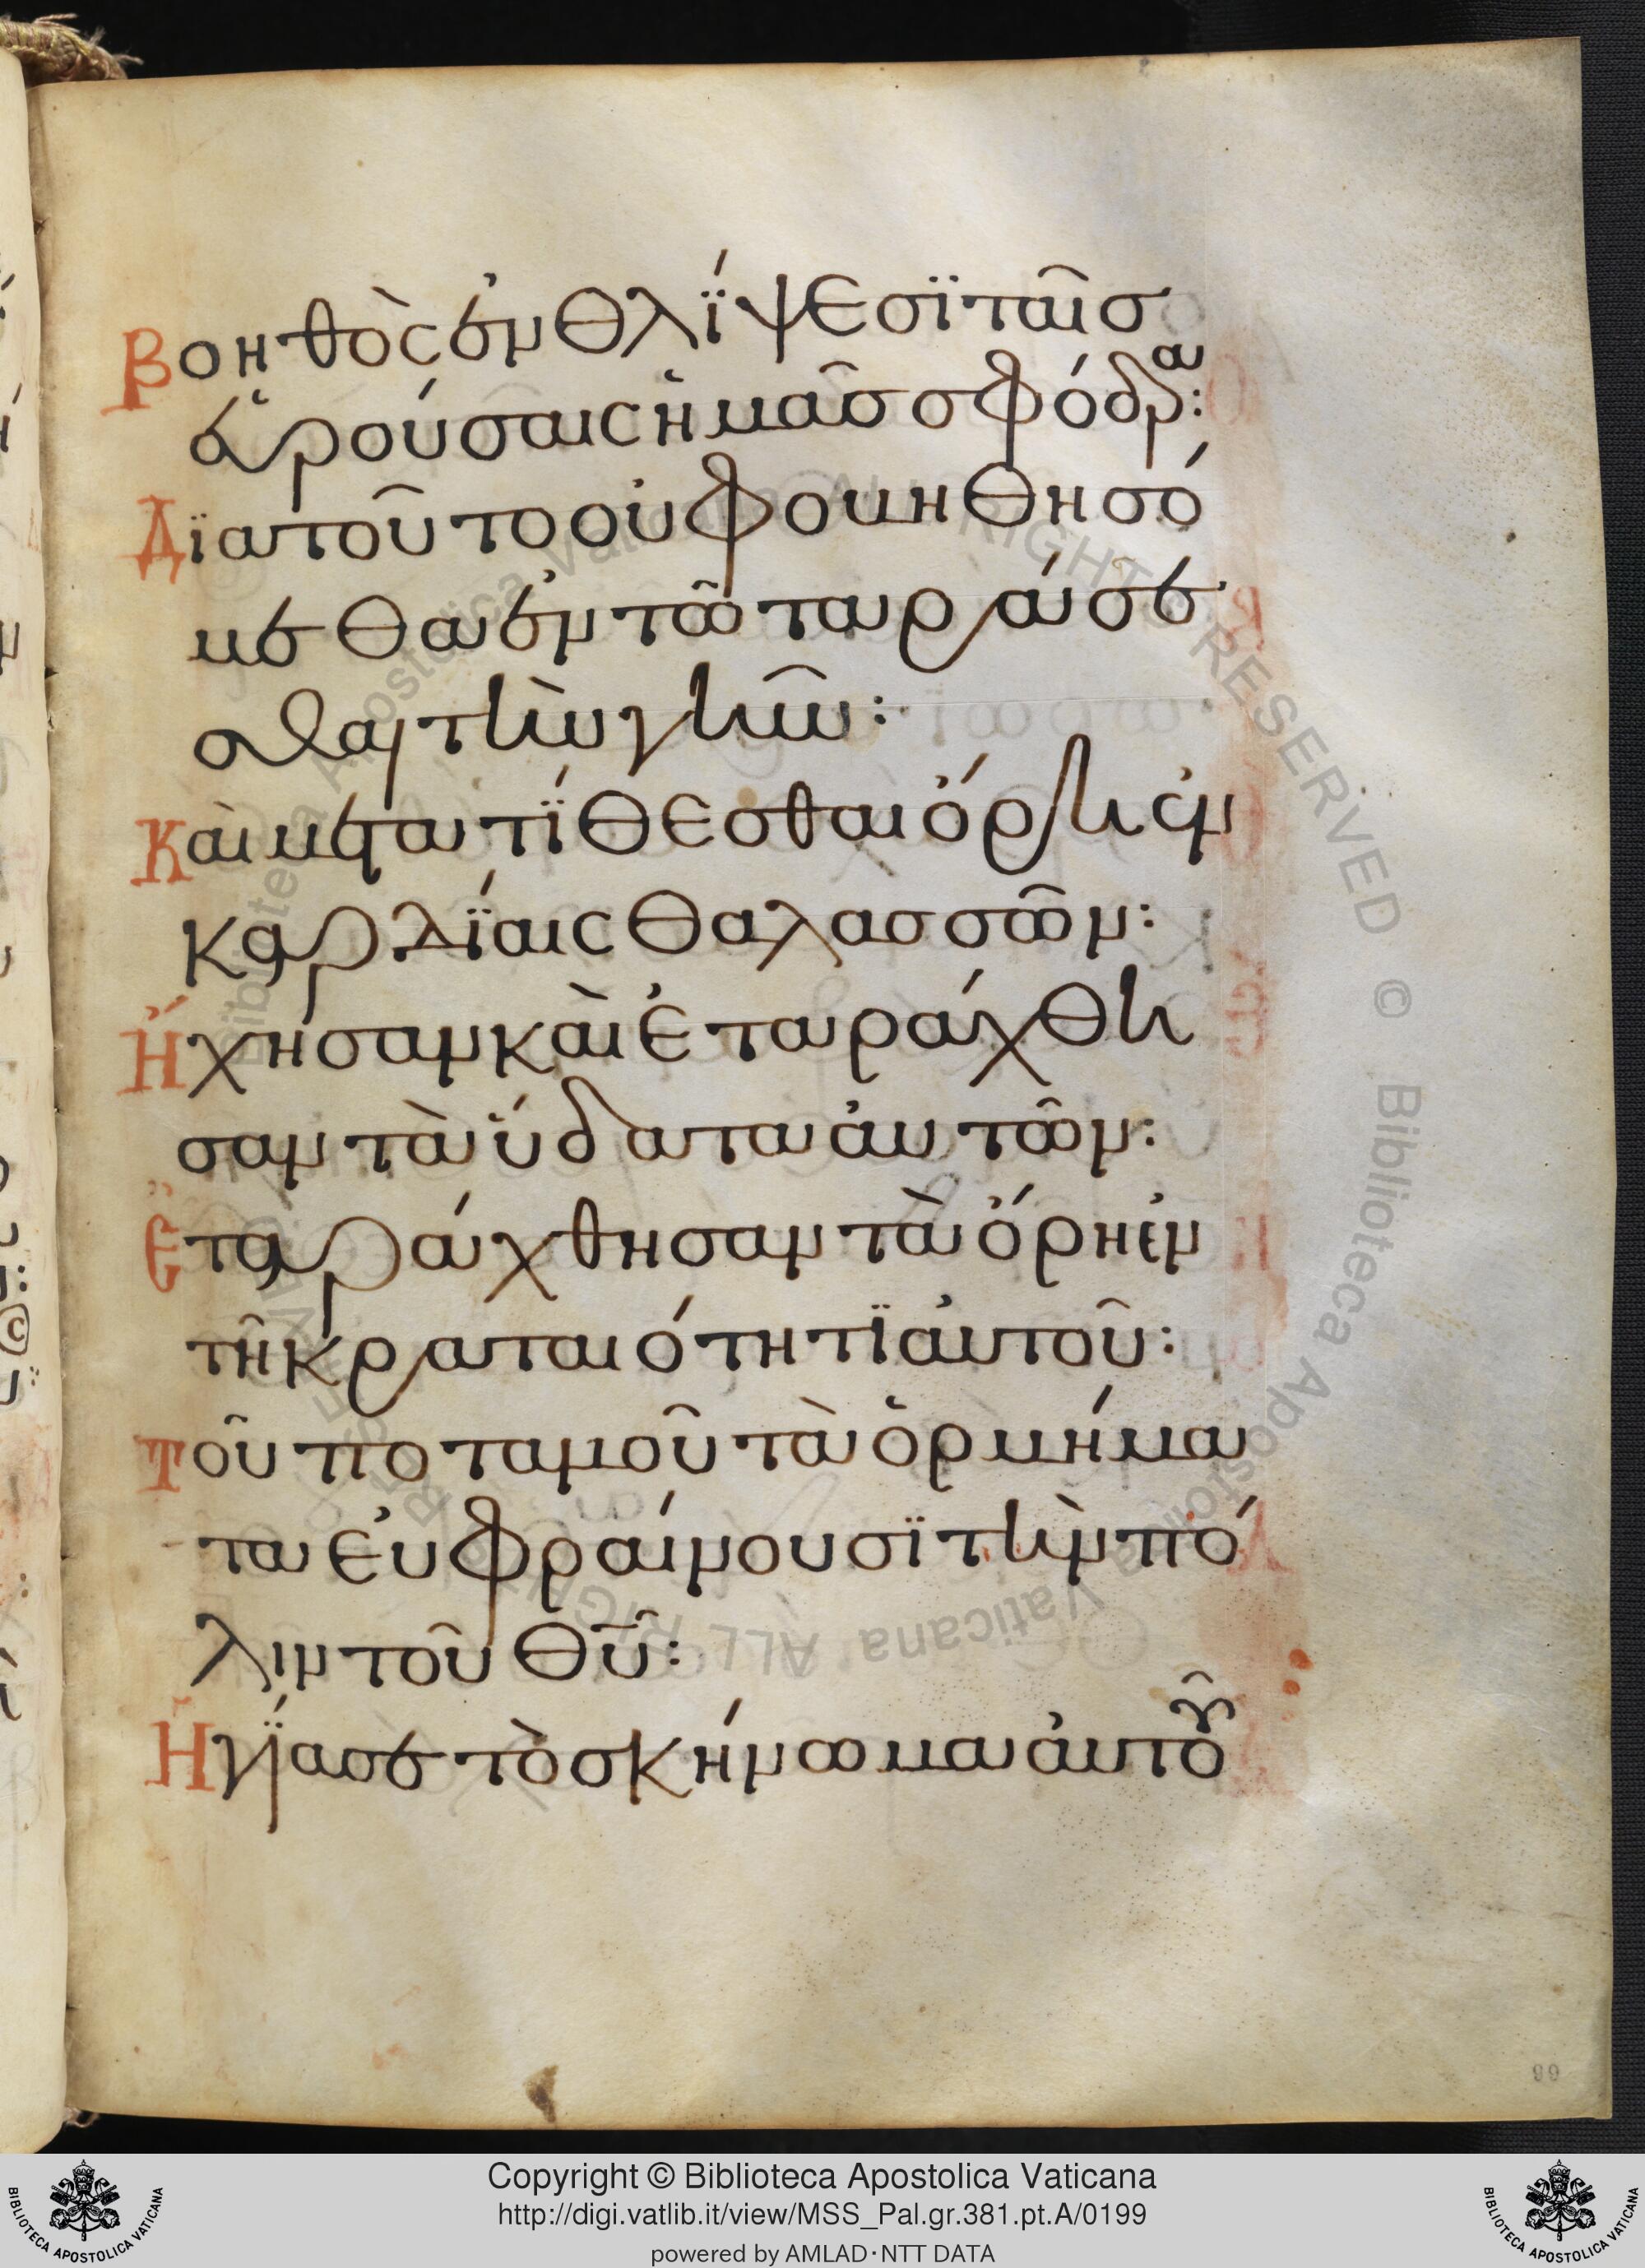 Βοηθὸς ἐν θλίψεσϊ ταῖσ
εὑρούσαις ἡμᾶσ σφόδρα:
Δϊατοῦτο οὐ φοβηθησό
μεθα ἐν τῶ ταράσσε
σθαι τὴν γῆν:
Καὶ μετατίθεσθαι ὄρη ἐν
καρδίαις θαλασσῶν:
Ἤχησαν καὶ ἐταράχθη
σαν τὰ ὕδατα ἀυτῶν:
Ἐταράχθησαν τὰ ὄρη ἐν
τῆ κραταιότητϊ ἀυτοῦ:
Τοῦ ποταμοῦ τὰ ὁρμήμα
τα ἐυφραίνουσϊ τὴν πό
λιν τοῦ θ̅υ̅:
Ἡγίασε τὸ σκήνωμα ἀυτοῦ
99
Biblioteca Apostolica Vaticana ALL RIGHTS RESERVED ©
Copyright © Biblioteca Apostolica Vaticana
http://digi.vatlib.it/view/MSS_Pal.gr.381.pt.A/0199
powered by AMLAD·NTT DATA
BIBLIOTECA APOSTOLICA VATICANA
BIBLIOTECA APOSTOLICA VATICANA